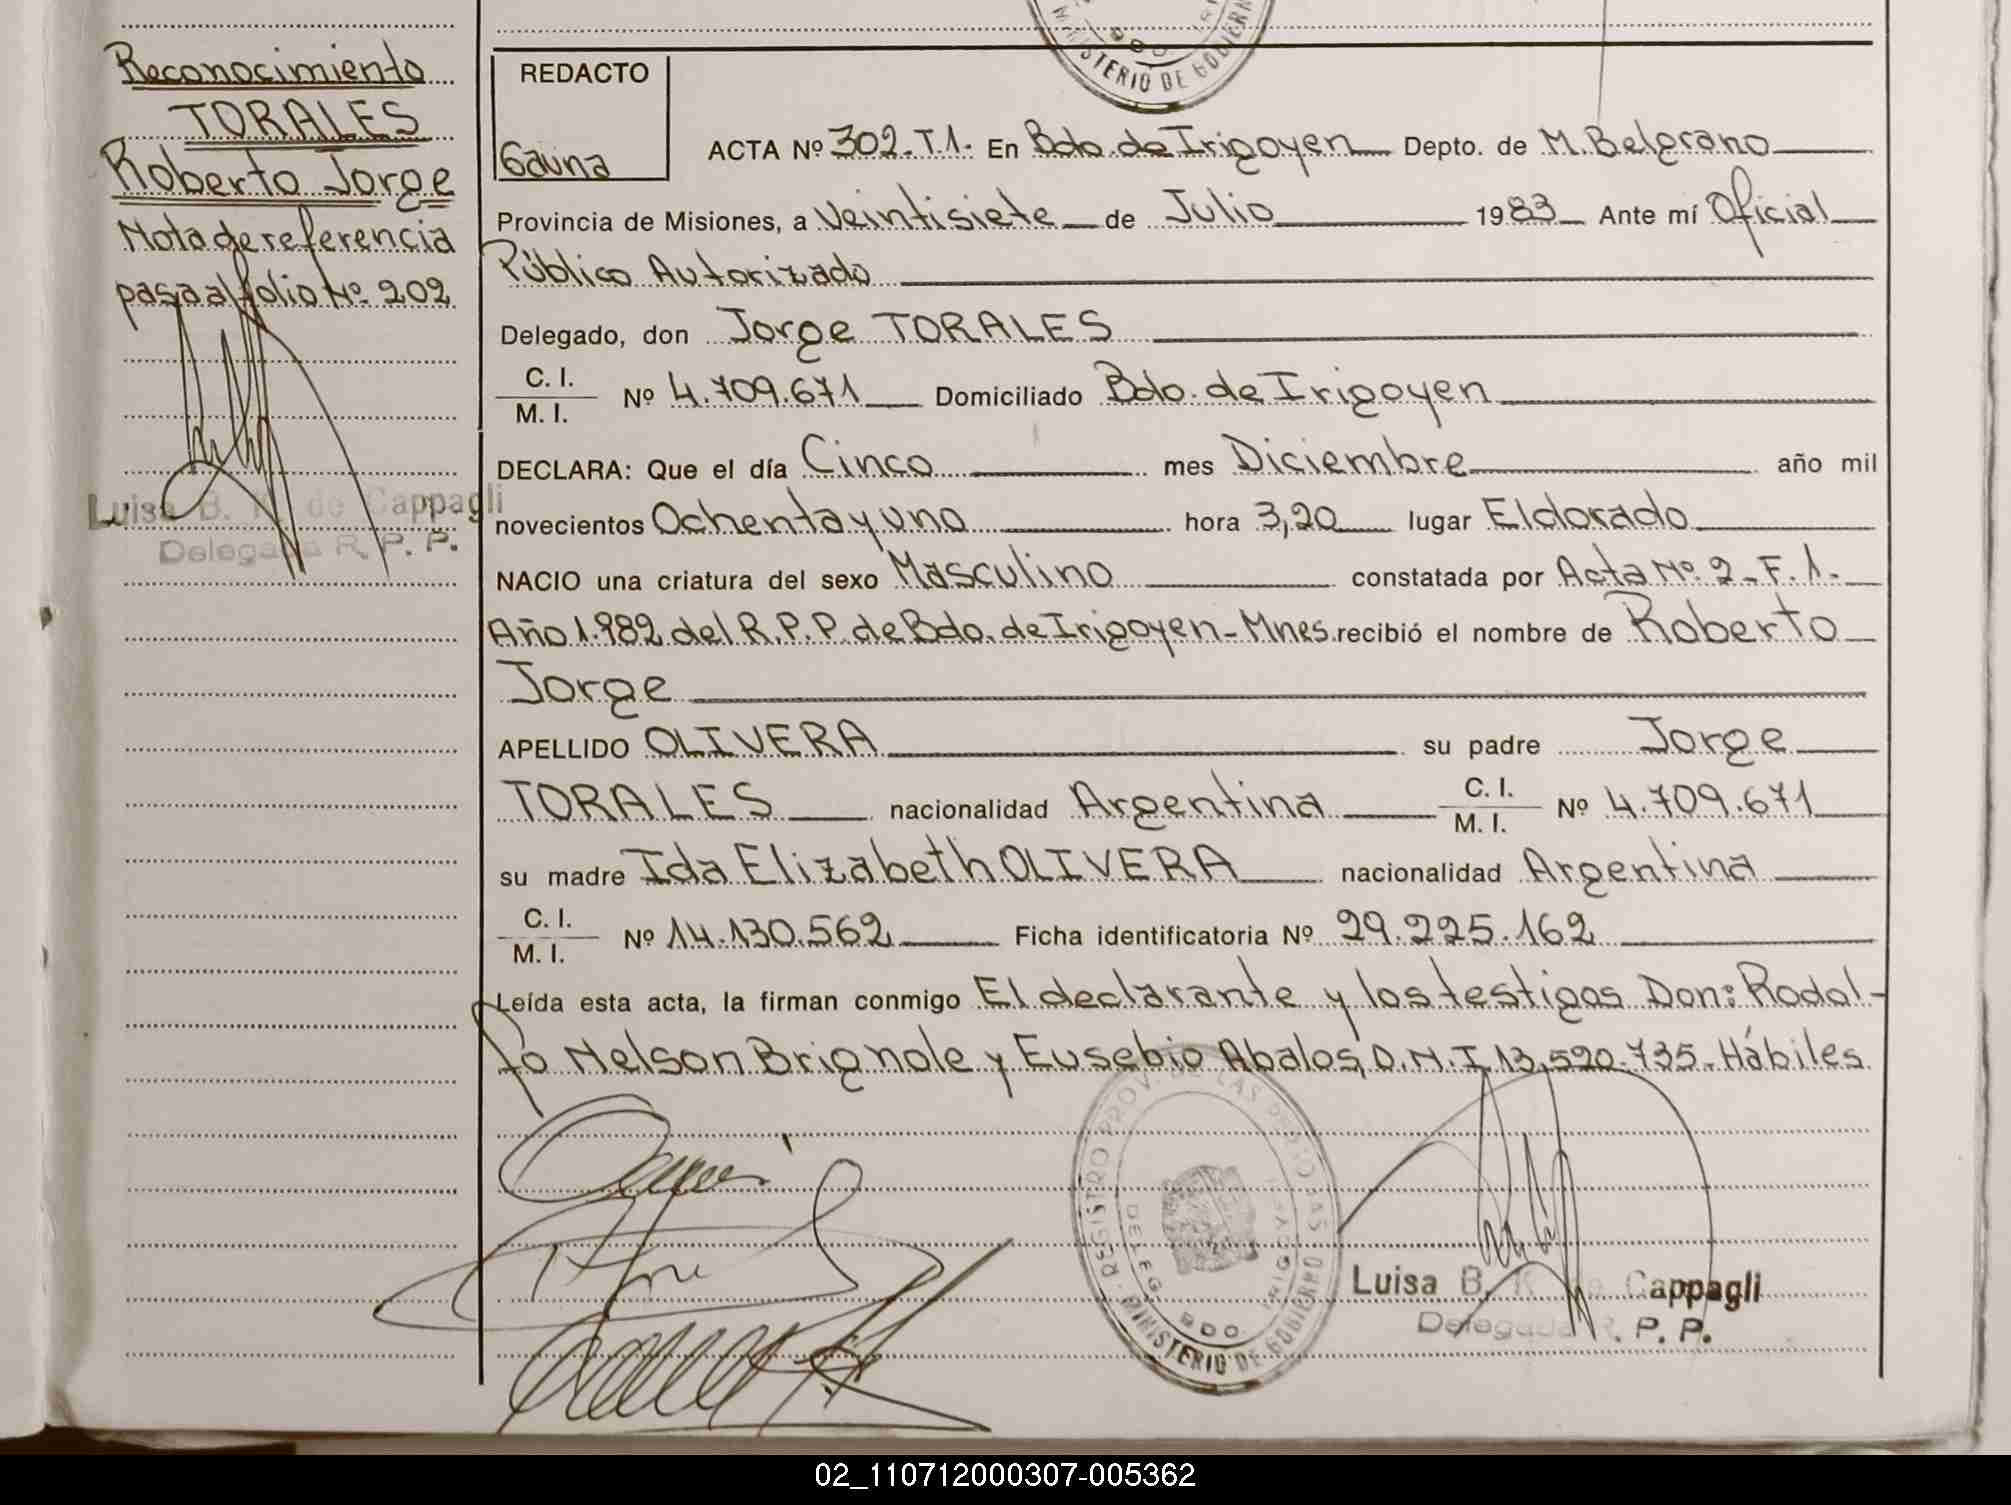 Reconocimiento
TORALES
Roberto Jorge
Nota de referencia
pasa al folio Nº 202
Luisa B. K. de Cappagli
Delegada R. P. P.
MINISTERIO DE GOBIERNO
REDACTO
Gauna
ACTA Nº 302.T.1. En Bdo. de Irigoyen Depto. de M. Belgrano
Provincia de Misiones, a Veintisiete de Julio 1983 Ante mí Oficial
Público Autorizado
Delegado, don Jorge TORALES
C. I.
M. I. Nº 4.709.671 Domiciliado Bdo. de Irigoyen
DECLARA: Que el día Cinco mes Diciembre año mil
novecientos Ochenta y uno hora 3,20 lugar Eldorado
NACIO una criatura del sexo Masculino constatada por Acta Nº 2-F.1.-
Año 1.982 del R.P.P. de Bdo. de Irigoyen-Mnes. recibió el nombre de Roberto
Jorge
APELLIDO OLIVERA su padre Jorge
TORALES nacionalidad Argentina C. I. M. I. Nº 4.709.671
su madre Ida Elizabeth OLIVERA nacionalidad Argentina
C. I.
M. I. Nº 14.130.562 Ficha identificatoria Nº 29.225.162
Leída esta acta, la firman conmigo El declarante y los testigos Don: Rodol-
fo Nelson Brignole y Eusebio Abalos, D.N.I 13.520.735.- Hábiles
REGISTRO PROV. DE LAS PERSONAS
BDO IRIGOYEN
MINISTERIO DE GOBIERNO
Luisa B. K. de Cappagli
Delegada R. P. P.
02_110712000307-005362